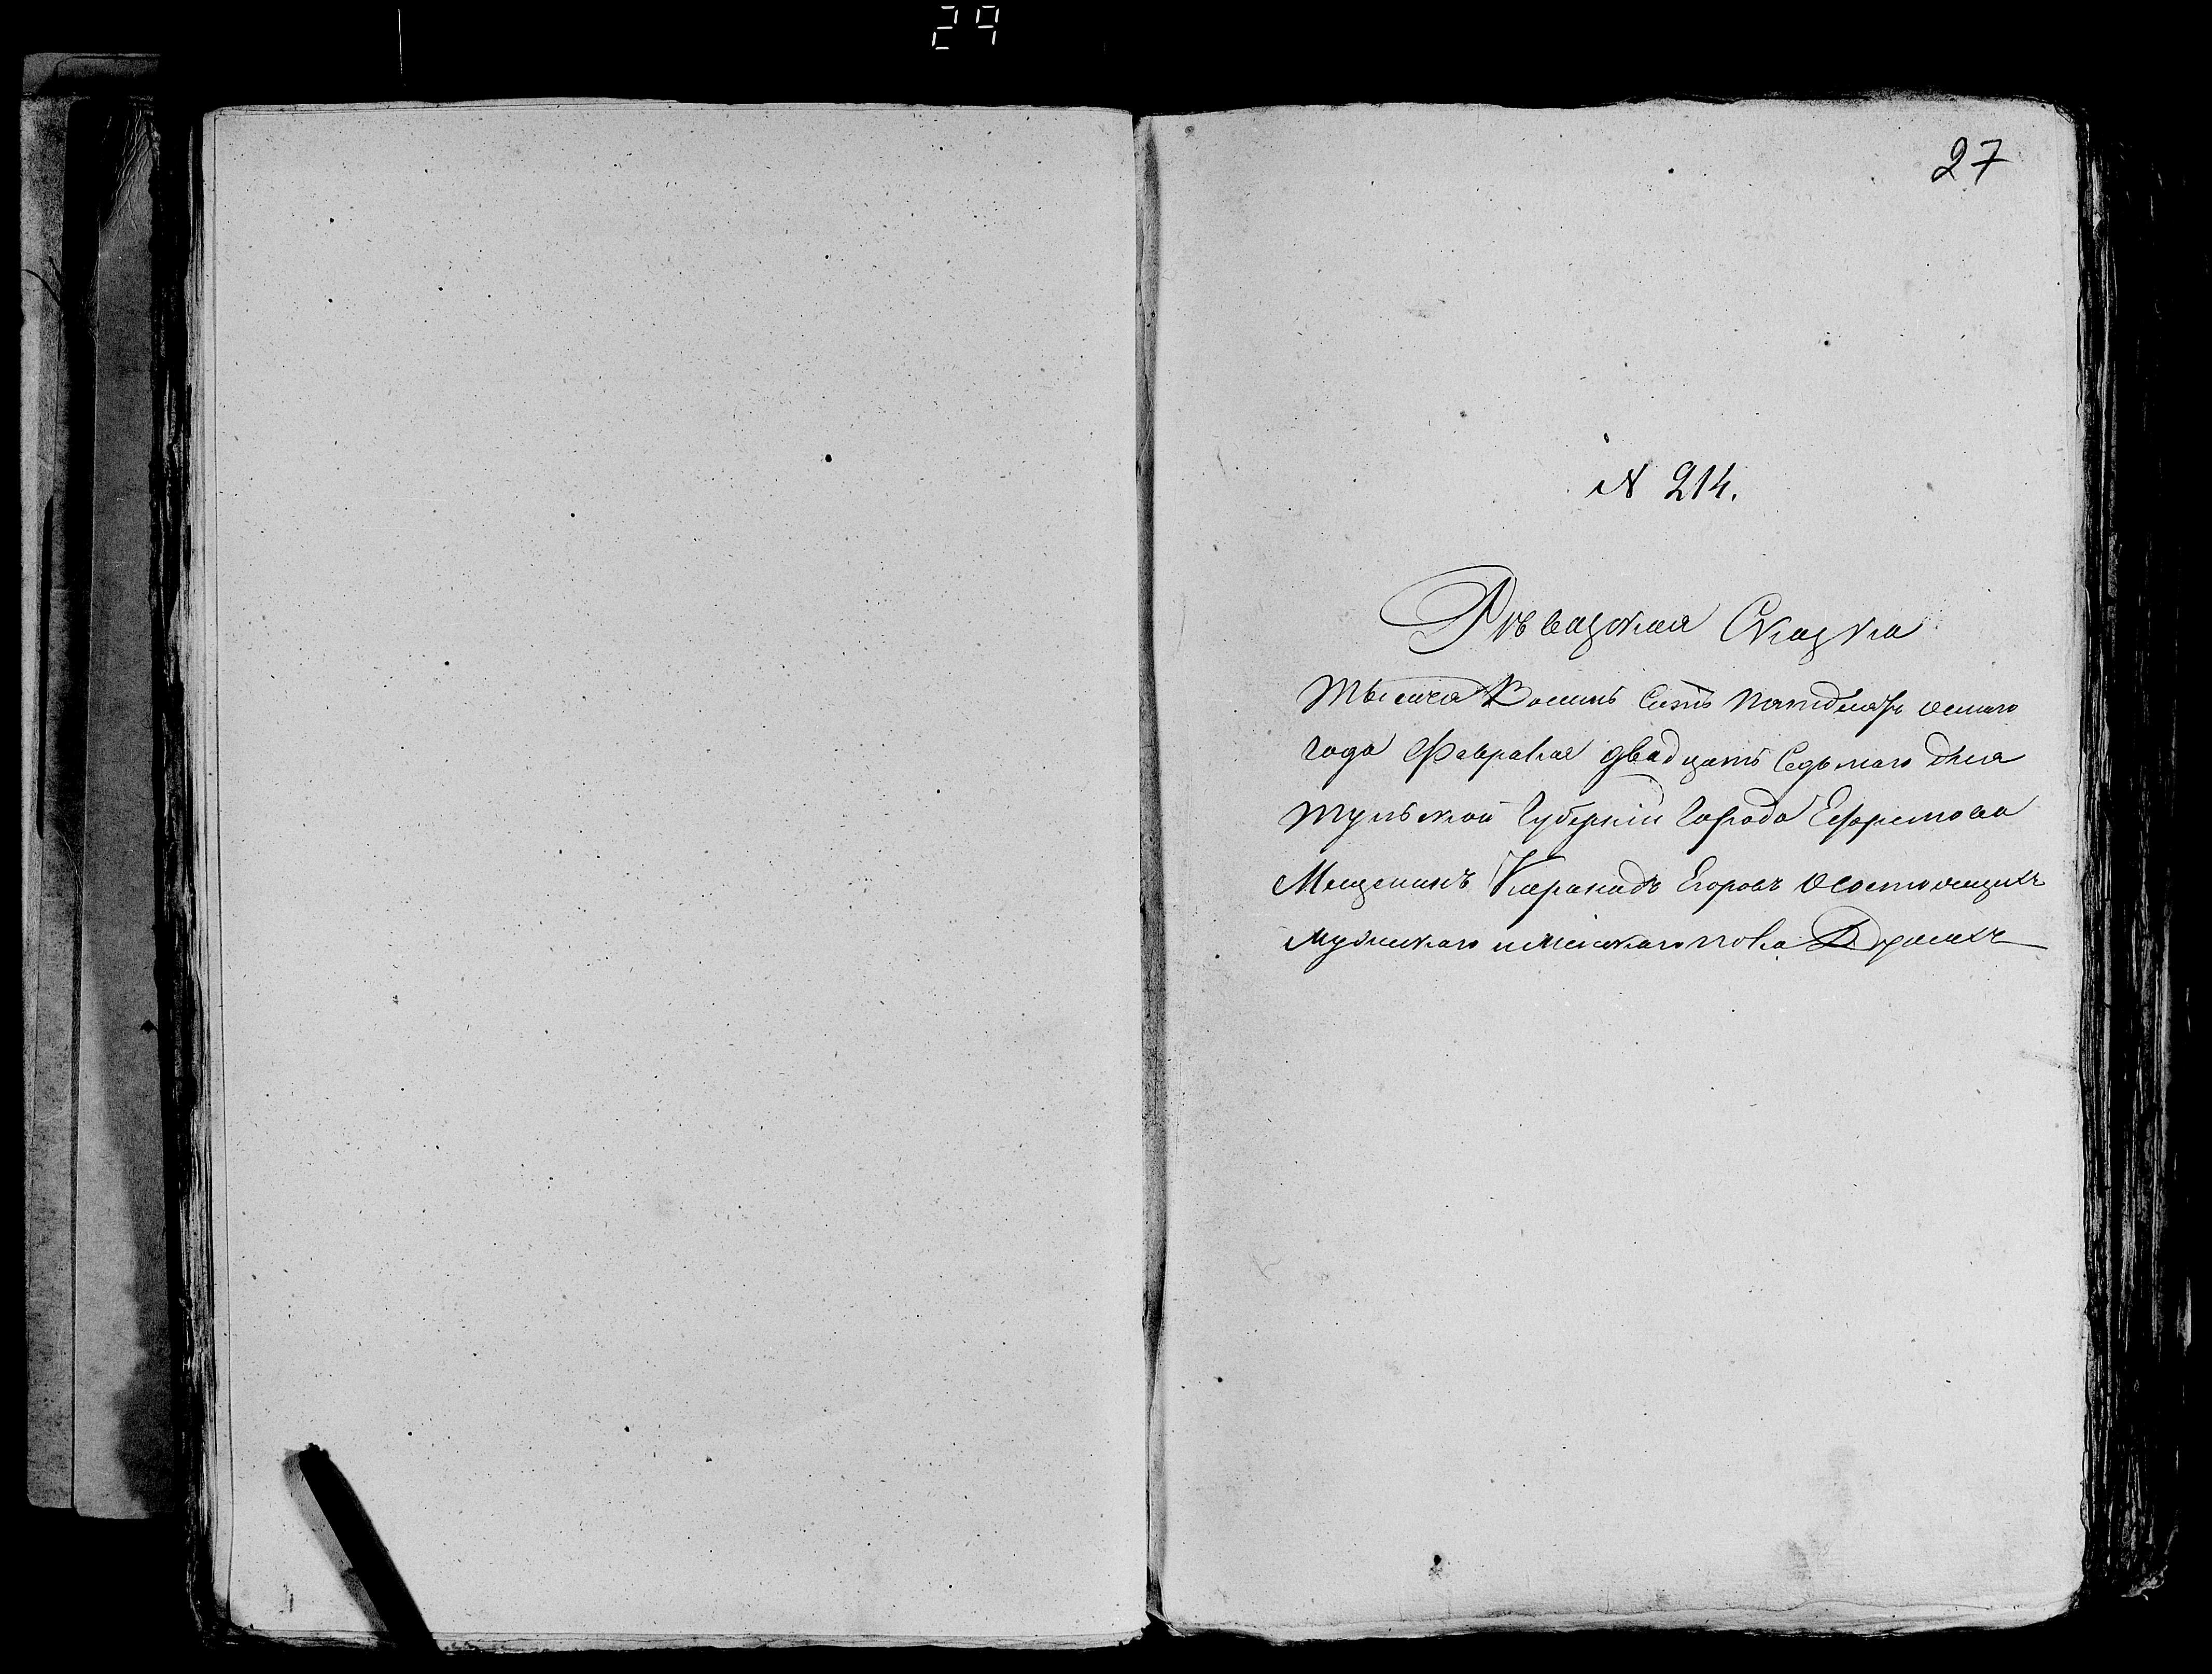 29
27
N 214.
Ревизская Сказка
Тысяча Восимь Сотъ Пятидесятъ осмаго
года Февраля двадцать Седьмаго дня
Тульской Губерніи Города Ефремова
Мещенинъ Егоровъ О состоющихъ
Мужескаго и Женскаго пола Душахъ